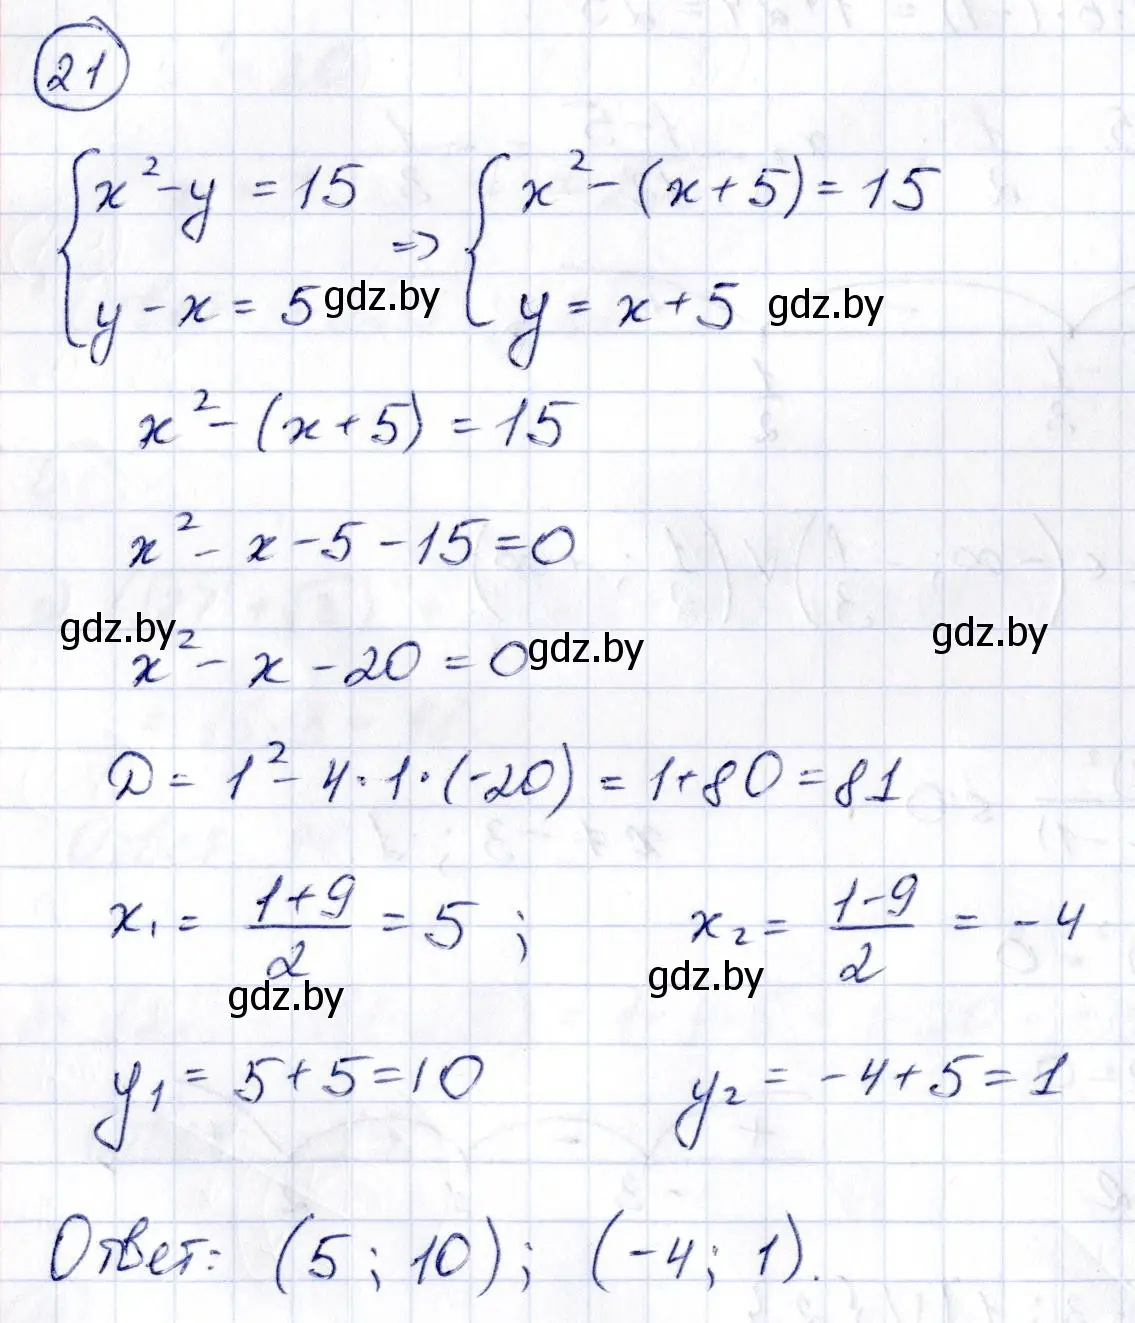 21
x² - y = 15 => x² - (x + 5) = 15
y - x = 5 gdz.by y = x + 5 gdz.by
x² - (x + 5) = 15
x² - x - 5 - 15 = 0
gdz.by x² - x - 20 = 0 gdz.by gdz.by
D = 1² - 4 · 1 · (-20) = 1 + 80 = 81
x₁ = (1+9)/2 = 5 ; x₂ = (1-9)/2 = -4
gdz.by gdz.by
y₁ = 5 + 5 = 10 y₂ = -4 + 5 = 1
Ответ: (5 ; 10) ; (-4 ; 1).